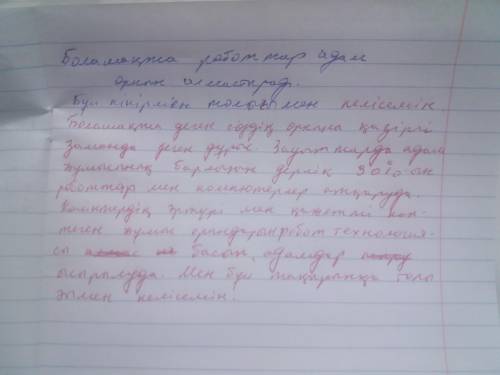 Болашақта роботтар адам
орнын алмастырады.
Бұл пікірмен толығымен келісемін
Болашақта деген сөздің орнына қазіргі
заманда деген дұрыс. Зауыттарда адам
жұмысының барлығын дерлік 90% ін
роботтар мен компютерлер атқаруда.
Көптеген жұмыс орындарын робот технология-
сы басып, адамдар
ысырылуда. Мен бұл тақырыпқа толы
ғымен келісемін.